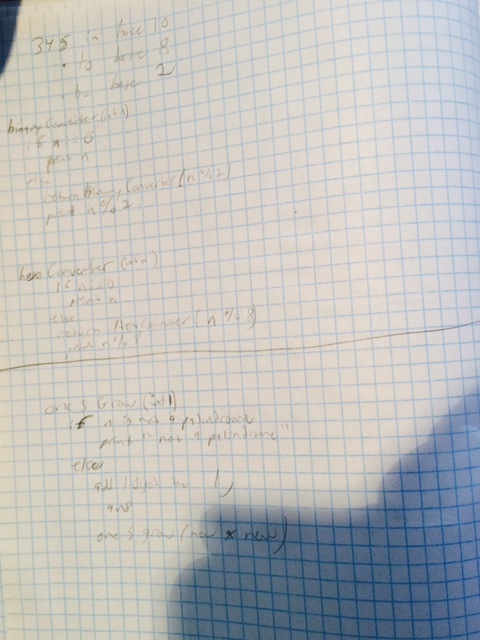 345 in base 10
• to base 8
• to base 2
binaryConverter(int n)
if n = 0
print n
else
return BinaryConverter(n % 2)
print n % 2
hexConverter (int n)
if n = 0
print n
else
return HexConverter (n % 8)
print n % 8
ones Grow (int 1)
if n is not a palindrome
print "not a palindrome"
else
add 1 digit to 1,
ones grow (new * new)